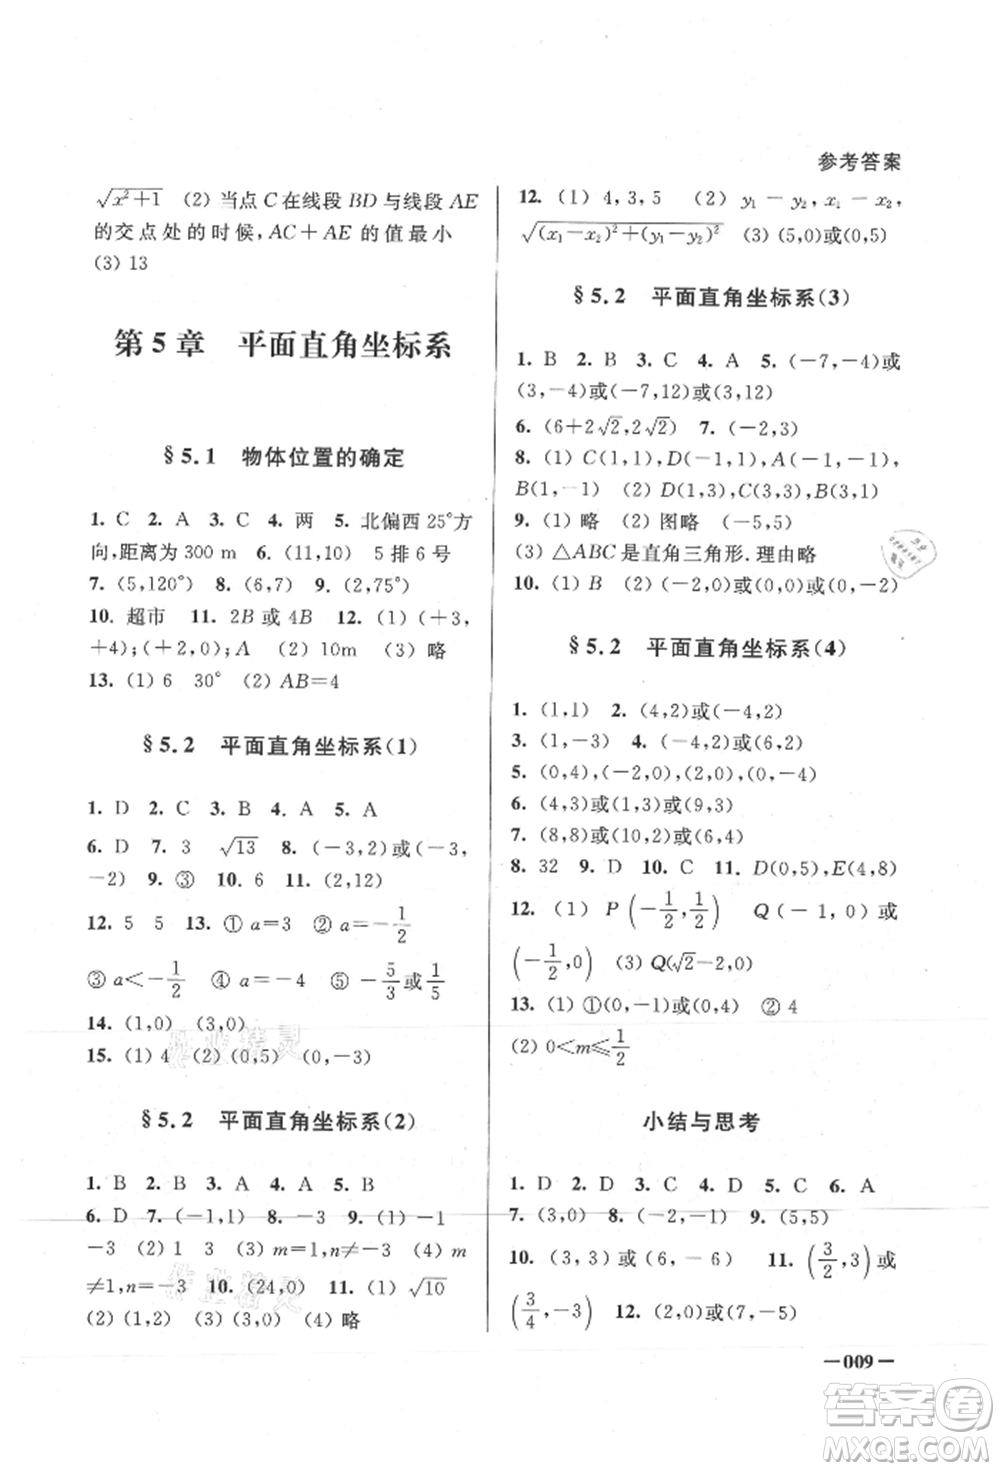 参考答案
√(x²+1) (2) 当点 C 在线段 BD 与线段 AE
的交点处的时候,AC+AE 的值最小
(3) 13
第 5 章 平面直角坐标系
§5.1 物体位置的确定
1. C 2. A 3. C 4. 两 5. 北偏西 25°方
向,距离为 300 m 6. (11,10) 5 排 6 号
7. (5,120°) 8. (6,7) 9. (2,75°)
10. 超市 11. 2B 或 4B 12. (1) (+3,
+4);(+2,0);A (2) 10m (3) 略
13. (1) 6 30° (2) AB=4
§5.2 平面直角坐标系(1)
1. D 2. C 3. B 4. A 5. A
6. D 7. 3 √13 8. (-3,2)或(-3,
-2) 9. ③ 10. 6 11. (2,12)
12. 5 5 13. ① a=3 ② a=-1/2
③ a<-1/2 ④ a=3 ⑤ -5/3或1/5
14. (1,0) (3,0)
15. (1) 4 (2) (0,5) (0,-3)
§5.2 平面直角坐标系(2)
1. B 2. B 3. A 4. A 5. B
6. D 7. (-1,1) 8. -3 9. (1) -1
-3 (2) 1 3 (3) m=1,n≠-3 (4) m
≠1,n=-3 10. (24,0) 11. (1) √10
(2) (1,2) (3) (3,0) (4) 略
12. (1) 4,3,5 (2) y₁-y₂,x₁-x₂,
√((x₁-x₂)²+(y₁-y₂)²) (3) (5,0)或(0,5)
§5.2 平面直角坐标系(3)
1. B 2. B 3. C 4. A 5. (-7,-4)或
(3,-4)或(-7,12)或(3,12)
6. (6+2√2,2√2) 7. (-2,3)
8. (1) C(1,1),D(-1,1),A(-1,-1),
B(1,-1) (2) D(1,3),C(3,3),B(3,1)
9. (1) 略 (2) 图略 (-5,5)
(3) △ABC是直角三角形.理由略
10. (1) B (2) (-2,0)或(0,-2)
§5.2 平面直角坐标系(4)
1. (1,1) 2. (4,2)或(-4,2)
3. (1,-3) 4. (-4,2)或(6,2)
5. (0,4),(-2,0),(2,0),(0,-4)
6. (4,3)或(1,3)或(9,3)
7. (8,8)或(10,2)或(6,4)
8. 32 9. D 10. C 11. D(0,5),E(4,8)
12. (1) P(-1/2,1/2) Q(-1,0)或
(-1/2,0) (3) Q(√2-2,0)
13. (1) ①(0,-1)或(0,4) ② 4
(2) 0<m≤1/2
小结与思考
1. D 2. D 3. C 4. D 5. C 6. A
7. (3,0) 8. (-2,-1) 9. (5,5)
10. (3,3)或(6,-6) 11. (3/2,3)或
(3/4,-3) 12. (2,0)或(7,-5)
—009—
作业精灵
作业精灵
答案圈
MXQE.COM